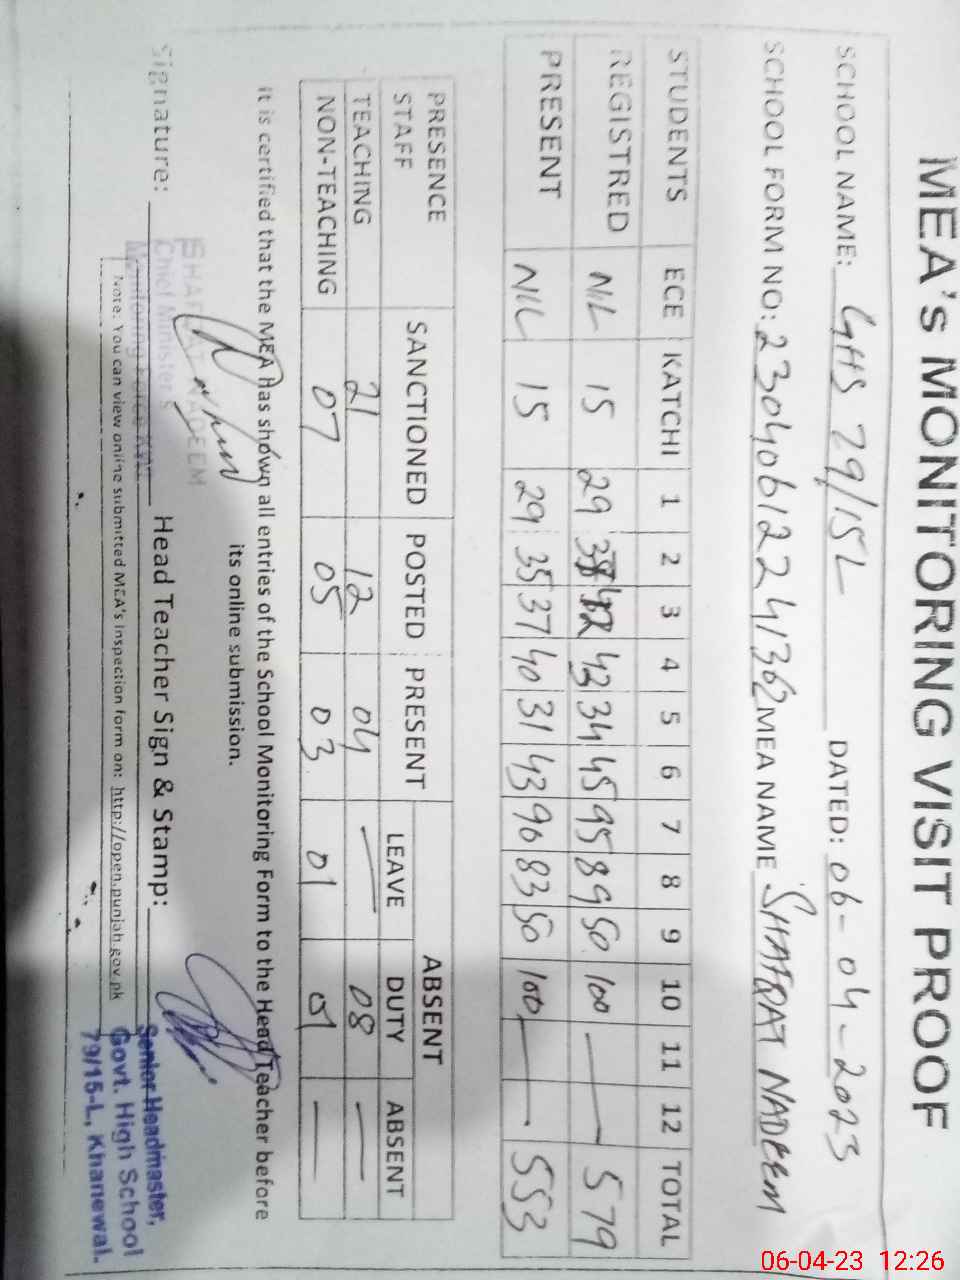 MEA's MONITORING VISIT PROOF
SCHOOL NAME: GHS 79/15L DATED: 06-04-2023
SCHOOL FORM NO: MEA NAME SHAFQAT NADEEM
STUDENTS ECE KATCHI 1 2 3 4 5 6 7 8 9 10 11 12 TOTAL
REGISTRED NIL 15 29 42 34 45 95 89 50 100 — 579
PRESENT NIL 15 29 35 37 40 31 43 90 83 50 100 — 553
PRESENCE SANCTIONED POSTED PRESENT ABSENT
STAFF LEAVE DUTY ABSENT
TEACHING 21 12 04 — 08 —
NON-TEACHING 07 05 03 01 01 —
It is certified that the MEA Has shown all entries of the School Monitoring Form to the Head Teacher before
its online submission.
Signature: Head Teacher Sign & Stamp:
SHAFQAT NADEEM
Chief Minister's
Monitoring Force
Note: You can view online submitted MEA's Inspection form on: http://open.punjab.gov.pk
Senior Headmaster,
Govt. High School
79/15-L, Khanewal.
06-04-23 12:26